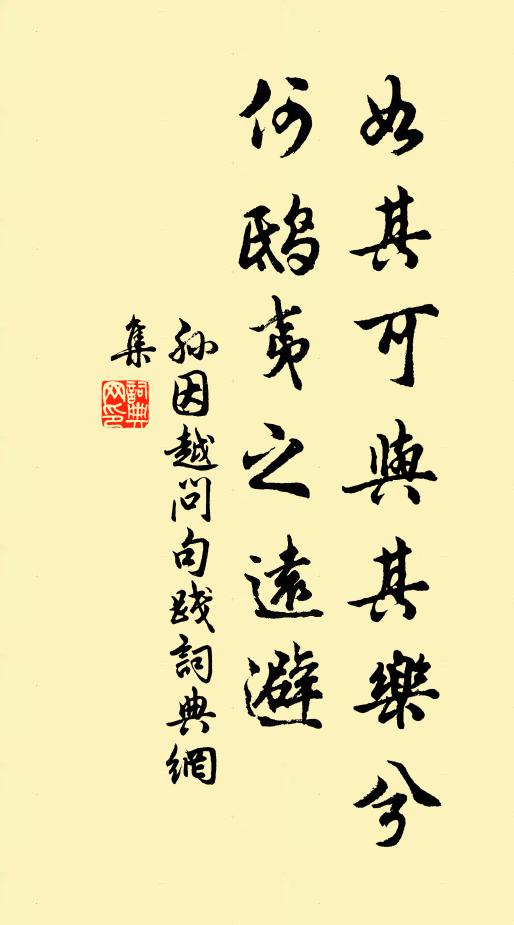 如其可與其樂兮
何鴟夷之遠避
孫因越問句踐詞典網
集
詞典網印